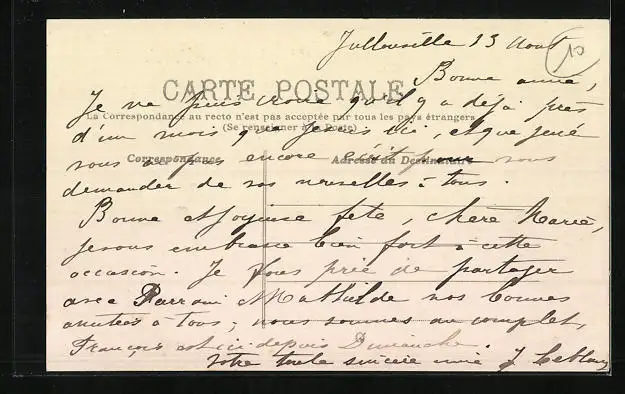 Jullouville 13 Août
10
Bonne amie,
CARTE POSTALE
Je ne puis croire qu'il y a déjà près
La Correspondance au recto n'est pas acceptée par tous les pays étrangers
(Se renseigner à la Poste)
d'un mois que je suis ici, et que je ne
Correspondance
Adresse du Destinataire
vous ai pas encore écrit pour vous
demander de vos nouvelles à tous.
Bonne et Joyeuse fête, chère Marie,
je vous embrasse bien fort à cette
occasion. Je vous prie de partager
avec Parrain Mathilde nos bonnes
amitiés à tous, nous sommes au complet,
François est ici depuis Dimanche.
Votre toute sincère amie J Leblanc